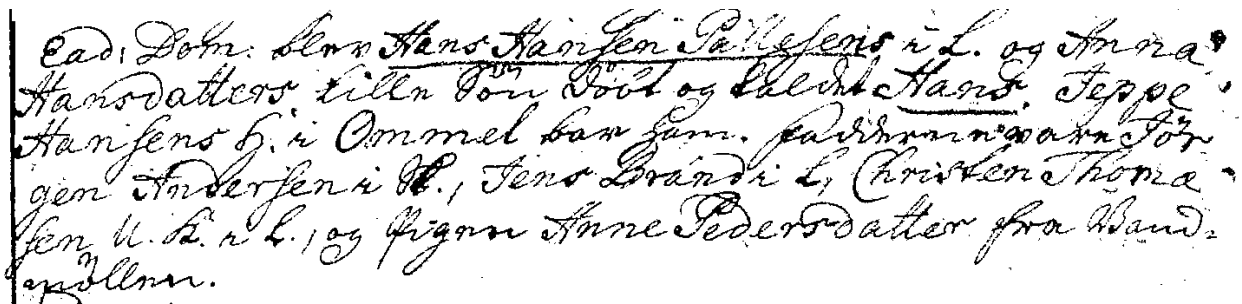 Ead. Dom. blev Hans Hansen Pallesens i L. og Anna
Hansdatters lille Søn døbt og kaldet Hans. Jeppe
Hansens H. i Ommel bar ham. Fadderne vare Jør
gen Andersen i K., Jens Brand i L, Christen Thoma
sen U. K. i L., og Pigen Anne Pedersdatter fra Vand-
møllen.